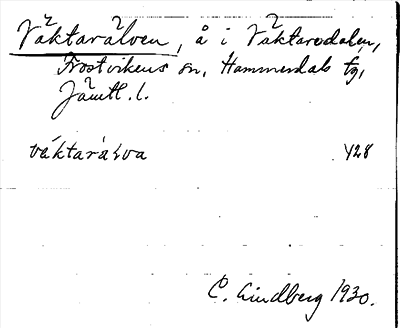 Väktarälven, å i Väktardalen,
Frostvikens sn, Hammerdals tg,
Jämtl. l.
váktaràɩva 428
C. Lindberg 1930.